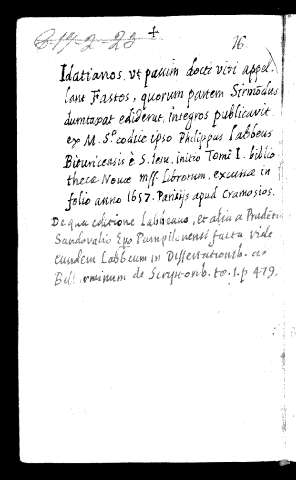 16.
Idatianos, vt passim docti viri appel-
lant Fastos, quorum partem Sirmōdus
dumtaxat ediderat, integros publicavit
ex M.S.º codice ipso Philippus Labbeus
Bituricensis è S. Iesu, initio Tomi I. biblio
thecæ Novæ mss. librorum, excussæ in
folio anno 1657. Parisijs apud Cramosios.
De qua editione Labbeana, et alia a Prudētio
Sandovalio Epo Pampilonensi facta vide
eundem Labbeum in Dissertationib. ad
Bellarminum de Scriptorib. to. 1. p 479.